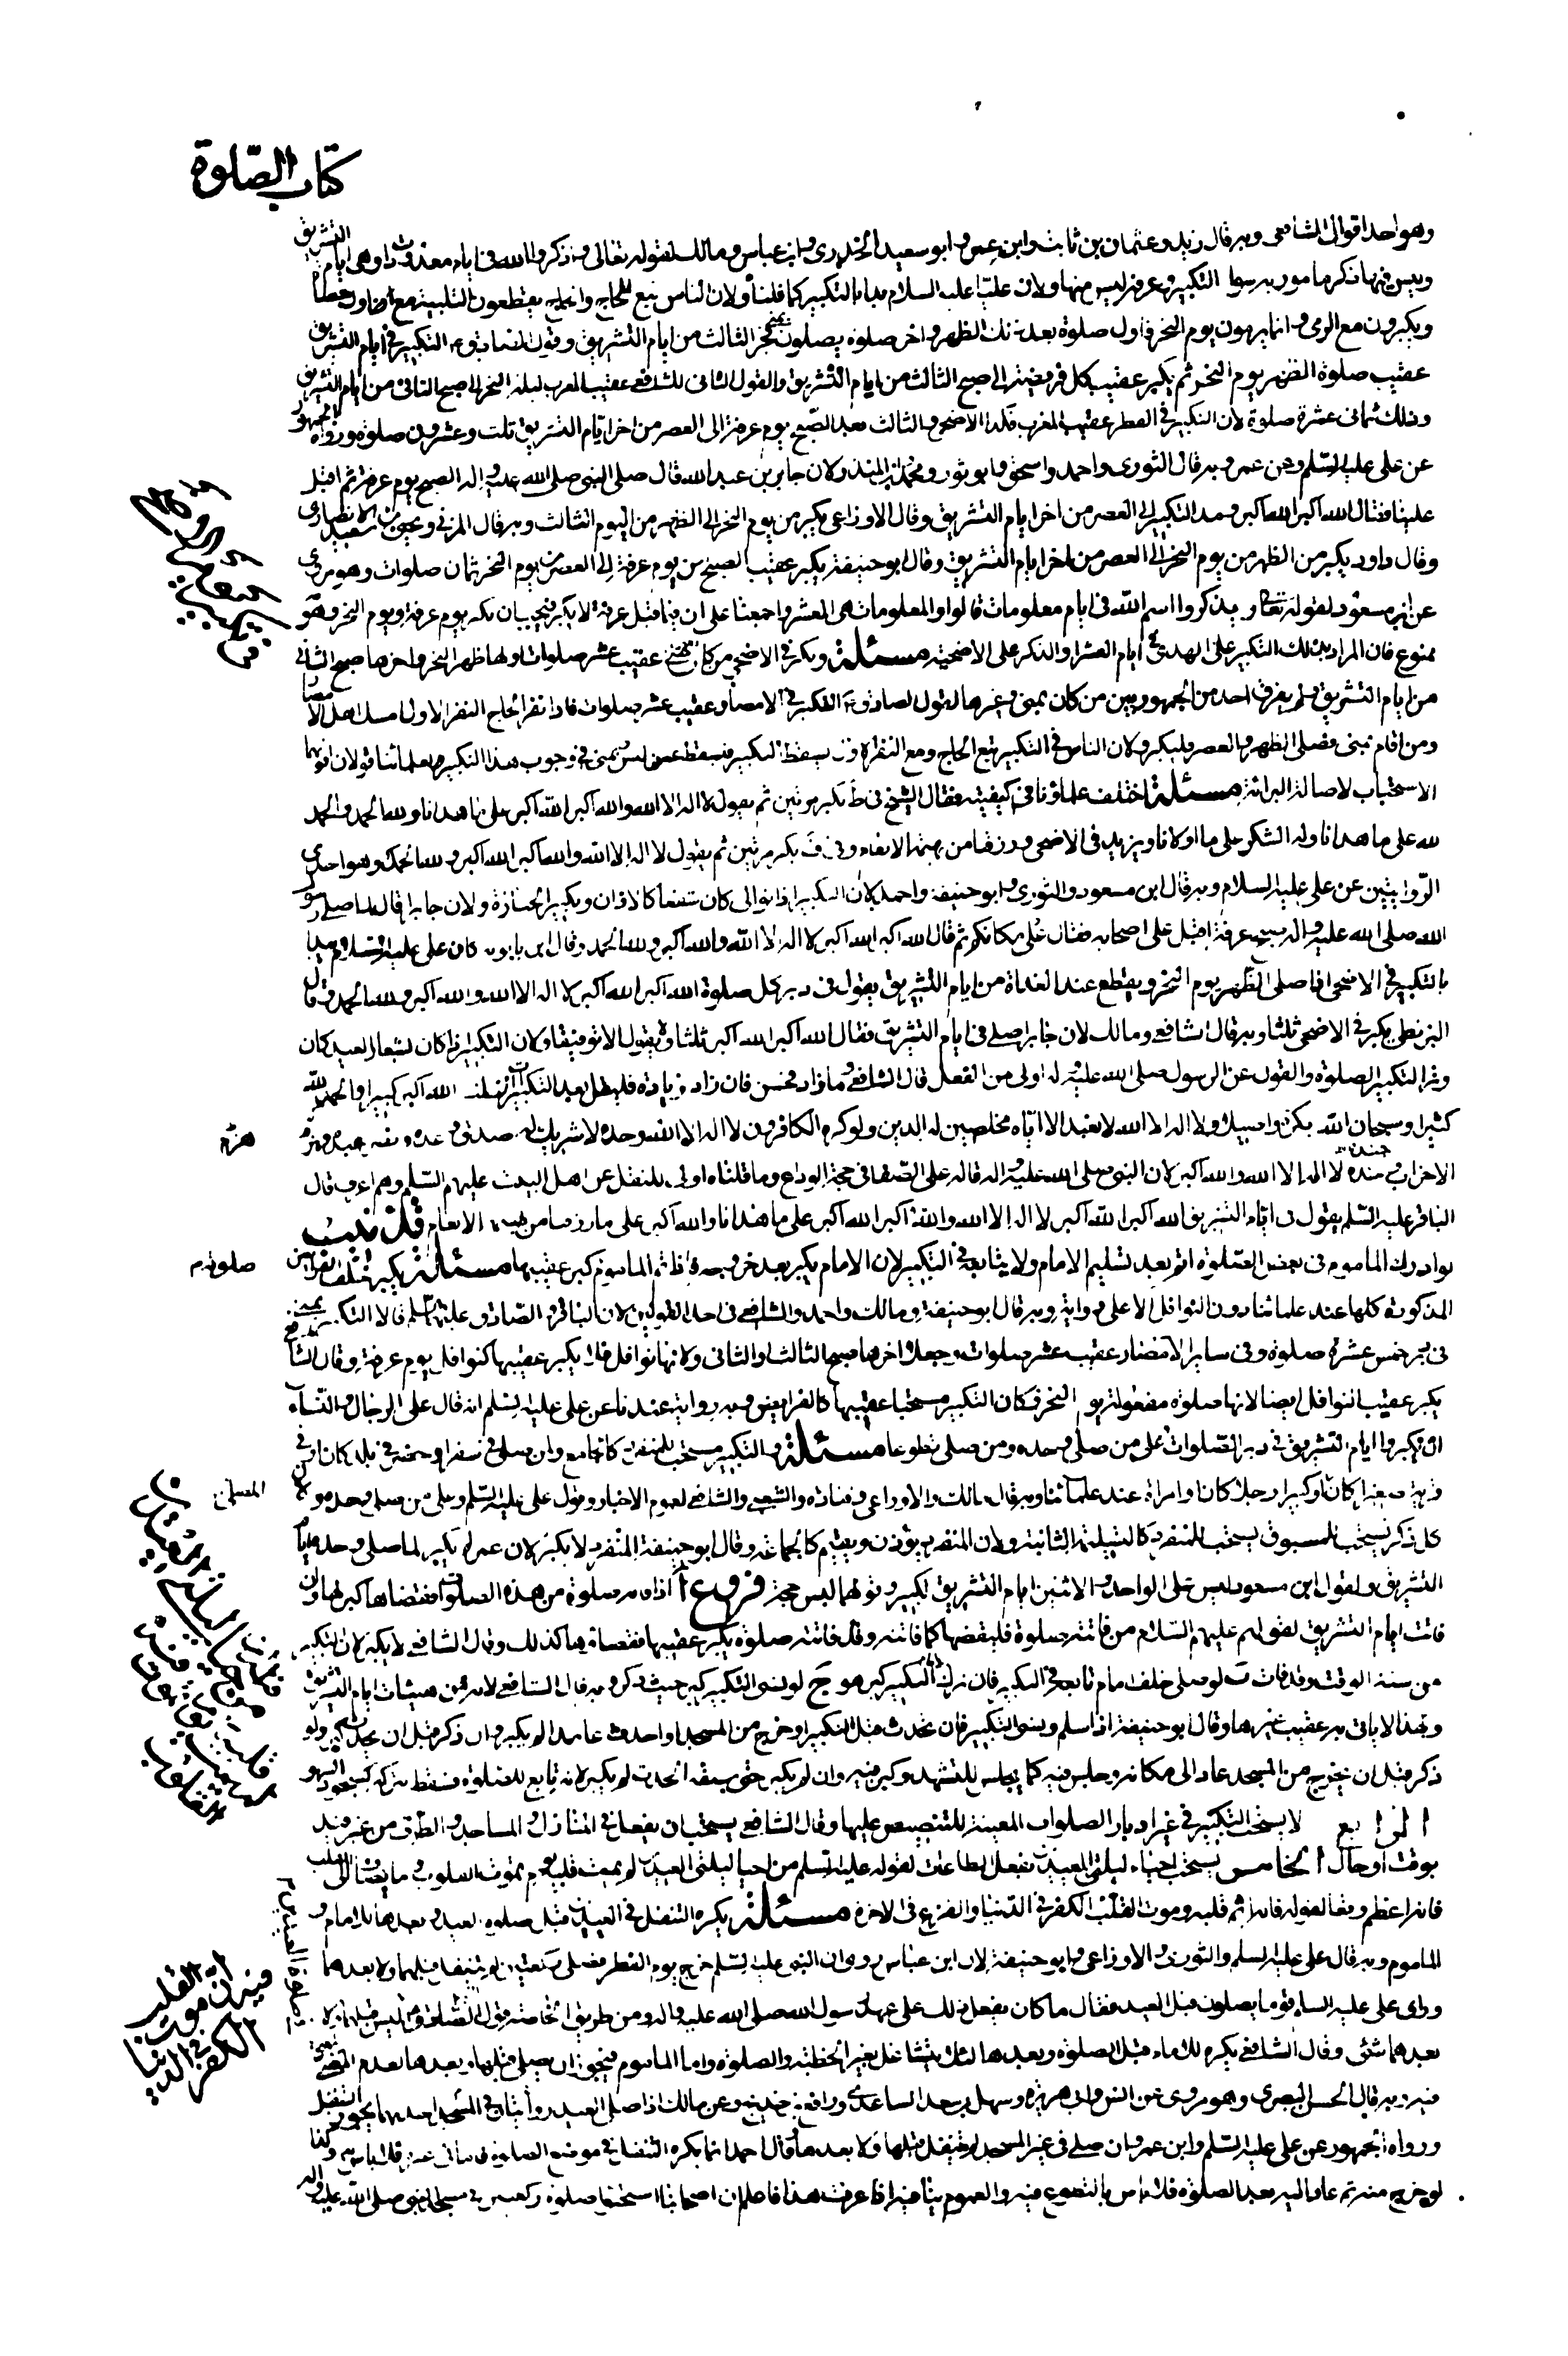 كتاب الصّلوة
وهو احد اقوال الشافعى وبه قال زيد وعثمان بن ثابت وابن عمر وابو سعيد الخدرى وابن عباس ومالك لقوله تعالى واذكروا الله فى ايام معدودات وهى ايام التشريق
وليس فيها ذكر مامور به سوى التكبير وعرفة ليس منها ولان عليّا عليه السلام بدا بالتكبير كما قلنا ولان الناس تبع للحاج والحاج يقطعون التلبية مع اول حصاة
ويكبرون مع الرمى وانما يرمون يوم النحر فاول صلوة بعد ذلك الظهر واخر صلوة يصلون بمنى فجر الثالث من ايام التشريق وقول الصادق ع التكبير فى ايام التشريق
عقيب صلوة الظهر يوم النحر ثم يكبر عقيب كل فريضة الى صبح الثالث من ايام التشريق والقول الثانى للشافعى عقيب المغرب ليلة النحر الى صبح الثالث من ايام التشريق
وذلك ثمانى عشرة صلوة لان التكبير فى الفطر عقيب المغرب فكذا الاضحى والثالث بعد الصبح يوم عرفة الى العصر من اخر ايام التشريق ثلث وعشرون صلوة ورواه الجمهور
عن على عليه السّلم وعن عمر وبه قال الثورى واحمد واسحق وابو ثور ومحمد ابن المنذر ولان جابر بن عبد الله قال صلى النبى صلى الله عليه واله الصبح يوم عرفة ثم اقبل
علينا فقال الله اكبر الله اكبر ومد التكبير الى العصر من اخر ايام التشريق وقال الاوزاعى يكبر من يوم النحر الى الظهر من اليوم الثالث وبه قال المزنى ويحيى بن سعيد الانصارى
وقال داود يكبر من الظهر من يوم النحر الى العصر من اخر ايام التشريق وقال ابو حنيفة يكبر عقيب الصبح من يوم عرفة الى العصر من يوم النحر ثمان صلوات وهو مروى
عن ابن مسعود لقوله تعالى ويذكروا اسم الله فى ايام معلومات قالوا والمعلومات هى العشر واجمعنا على ان ما قبل عرفة لا يكبر فيجب ان يكبر يوم عرفة ويوم النحر وهو
ممنوع فان المراد بذلك التكبير على الهدى فى ايام العشر او الذكر على الاضحية مسئلة ويكبر فى الاضحى من كان بمنى عقيب عشر صلوات اولها ظهر النحر واخرها صبح الثانى
من ايام التشريق ولم يفرق احد من الجمهور بين من كان بمنى وغيرها لقول الصادق ع التكبير فى الامصار عقيب عشر صلوات فاذا نفر الحاج النفر الاول امسك اهل الامصار
ومن اقام بمنى فصلى الظهر والعصر فليكبر ولان الناس فى التكبير تبع الحاج ومع النفر الاول يسقط التكبير فيسقط عمن ليس بمنى وفى وجوب هذا التكبير لعلمائنا قولان اقواهما
الاستحباب لاصالة البرائة مسئلة اختلف علماؤنا فى كيفيته فقال الشيخ فى ط يكبر مرتين ثم يقول لا اله الا الله والله اكبر الله اكبر على ما هدانا ولله الحمد والحمد
لله على ما هدانا وله الشكر على ما اولانا ويزيد فى الاضحى ورزقنا من بهيمة الانعام وفى ف يكبر مرتين ثم يقول لا اله الا الله والله اكبر الله اكبر ولله الحمد وهو احدى
الرّوايتين عن على عليه السلام وبه قال ابن مسعود والثورى وابو حنيفة واحمد لان التكبير اذا توالى كان شفعا كالاذان وتكبير الجنازة ولان جابرا قال لما صلى رسول
الله صلى الله عليه واله صبح عرفة اقبل على اصحابه فقال على مكانكم ثم قال الله اكبر الله اكبر لا اله الا الله والله اكبر ولله الحمد وقال ابن بابويه كان على عليه السلام يبدا
بالتكبير فى الاضحى اذا صلى الظهر يوم النحر ويقطع عند الغداة من ايام التشريق يقول فى دبر كل صلوة الله اكبر الله اكبر لا اله الا الله والله اكبر ولله الحمد وقال
البزنطى يكبر فى الاضحى ثلثا وبه قال الشافعى ومالك لان جابرا صلى فى ايام التشريق فقال الله اكبر الله اكبر الله اكبر ثلثا ولا يقول الا توقيفا ولان التكبير اذا كان لشعار العيد كان
وترا كتكبير الصلوة والقول عن الرسول صلى الله عليه واله اولى من الفعل قال الشافعى وما زاد فحسن فان زاد زيادة فليقل بعد التكبيرات الثلث الله اكبر كبيرا والحمد لله
كثيرا وسبحان الله بكرة واصيلا ولا اله الا الله لا نعبد الا اياه مخلصين له الدين ولو كره الكافرون لا اله الا الله وحده لا شريك له صدق وعده ونصر عبده وهزم
هزم
الاحزاب وحده لا اله الا الله والله اكبر لان النبى صلى الله عليه واله قاله على الصّفا فى حجة الوداع وما قلناه اولى للنقل عن اهل البيت عليهم السّلم وهم اعرف قال
الباقر عليه السّلم يقول فى ايام التشريق الله اكبر الله اكبر لا اله الا الله والله اكبر الله اكبر على ما هدانا والله اكبر على ما رزقنا من بهيمة الانعام
لو ادرك الماموم فى بعض الصّلوة اتم بعد تسليم الامام ولا يتابعه فى التكبير لان الامام يكبر بعد خروجه فاذا اتم الماموم كبر عقيبها مسئلة يكبر خلف الفرايض
صلوته
المذكورة كلها عند علمائنا دون النوافل الا على رواية وبه قال ابو حنيفة ومالك واحمد والشافعى فى احد القولين لان الباقر والصادق عليهما السلم قالا التكبير بمنى
فى دبر خمس عشرة صلوة وفى ساير الامصار عقيب عشر صلوات وجعلا اخرها صبح الثالث والثانى ولانها نوافل فلا يكبر عقيبها كنوافل يوم عرفة وقال الشافعى
يكبر عقيب النوافل ايضا لانها صلوة مفعولة يوم النحر فكان التكبير مستحبا عقيبها كالفرايض وبه رواية عندنا عن على عليه السلم انه قال على الرجال والنساء
ان يكبروا ايام التشريق فى دبر الصّلوات على من صلى وحده ومن صلى تطوعا مسئلة والتكبير مستحب للمنفرد كالجامع وان صلى فى سفر او حضر فى بلد كان او فى
قرية صغيرا كان او كبيرا رجلا كان او امراة عند علمائنا وبه قال مالك والاوزاعى وقتادة والشعبى والشافعى لعموم الاخبار وقول على عليه السلم وعلى من صلى وحده ولان
المصلى
كل ذكر يستحب للمسبوق يستحب للمنفرد كالتسليمة الثانية ولان المنفرد يؤذن ويقيم كالجماعة وقال ابو حنيفة المنفرد لا يكبر لان عمر لم يكبر لما صلى وحده ايام
التشريق ولقول ابن مسعود ليس على الواحد والاثنين ايام التشريق تكبير وقولهما ليس حجة فروع آ اذا فاته صلوة من هذه الصلوات فقضاها كبر لها وان
فاتت ايام التشريق لقولهم عليهم السّلام من فاتته صلوة فليقضها كما فاتته وقد فاتته صلوة يكبر عقيبها فقضاؤها كذلك وقال الشافعى لا يكبر لان التكبير
من سنة الوقت وقد فات ب لو صلى خلف امام تابعه فى التكبير فان ترك الامام التكبير كبر هو ج لو نسى التكبير كبر حيث ذكر وبه قال الشافعى لانه من هيئات ايام التشريق
ولهذا لا ياتى به عقيب غيرها وقال ابو حنيفة اذا سلم ونسى التكبير فان تحدث قبل التكبير او خرج من المسجد او احدث عامدا لم يكبر وان ذكر قبل ان يتكلم كبر ولو
ذكر قبل ان يخرج من المسجد عاد الى مكانه وجلس فيه كما يجلس للتشهد وكبر فيه وان لم يكبر حتى سبقه الحدث لم يكبر لانه تابع للصلوة فسقط بتركه كسجود السهو
الرابع لا يستحب التكبير فى غير ادبار الصلوات المعينة للتنصيص عليها وقال الشافعى يستحب ان يفعل فى المنازل والمساجد والطرق من غير قيد
بوقت او حال الخامس يستحب احياء ليلتى العيدين بفعل الطاعات لقوله عليه السلم من احيا ليلتى العيدين لم يمت قلبه يوم تموت القلوب وما يضاف الى القلب
فانه اعظم وقعا لقوله فانه اثم قلبه وموت القلب الكفر فى الدنيا والفزع فى الاخرة مسئلة يكره التنفل فى العيدين قبل صلوة العيد وبعدها للامام و
الماموم وبه قال على عليه السلم والثورى والاوزاعى وابو حنيفة لان ابن عباس روى ان النبى عليه السلم خرج يوم الفطر فصلى ركعتين لم يتنفل قبلهما ولا بعدهما
وراى على عليه السلم قوما يصلون قبل العيد فقال ما كان يفعل ذلك على عهد رسول الله صلى الله عليه واله ومن طريق الخاصة قول الصادق ع ليس قبلهما ولا
بعدهما شئ وقال الشافعى يكره للامام قبل الصلوة وبعدها لئلا يتشاغل بغير الخطبة والصلوة واما الماموم فيجوز ان يصلى قبلها وبعدها لعدم المعنى
فيه وبه قال الحسن البصرى وهو مروى عن انس وابى هريرة وسهل بن سعد الساعدى ورافع بن خديج وعن مالك اذا صلى العيد روايتان فى المسجد احدهما يجوز التنفل
ورواه الجمهور عن على عليه السّلم وابن عمر وان صلى فى غير المسجد لم يتنفل قبلها ولا بعدها وقال احمد انما يكره التنفل فى موضع الصلوة فاما فى غيره فلا باس به وكذا
لو خرج منه ثم عاد اليه بعد الصلوة فلا باس بالتطوع فيه والعموم ينافيه اذا عرفت هذا فاعلم ان اصحابنا استحبوا صلوة ركعتين فى مسجد النبى صلى الله عليه واله
فيه ان موت القلب
الكفر فى الدنيا